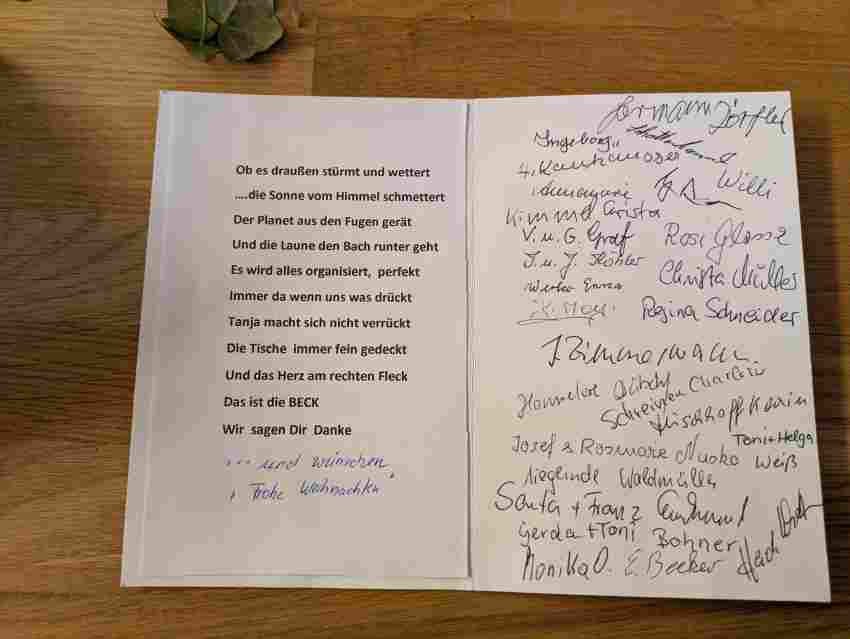 Ob es draußen stürmt und wettert
....die Sonne vom Himmel schmettert
Der Planet aus den Fugen gerät
Und die Laune den Bach runter geht
Es wird alles organisiert, perfekt
Immer da wenn uns was drückt
Tanja macht sich nicht verrückt
Die Tische immer fein gedeckt
Und das Herz am rechten Fleck
Das ist die BECK
Wir sagen Dir Danke
... und wünschen
Frohe Weihnachten
Hermann Dörfler
Ingeborg
Willi
Kimmel Christa
V. u. G. Graf
Rosi
J. u. J. Köhler
Christa Müller
Regina Schneider
J. Zimmermann
Hannelore
Karin
Toni + Helga
Josef & Weiß
Sieglinde Waldmüller
+ Franz
Gerda + Toni Bohner
Monika O. E. Becker